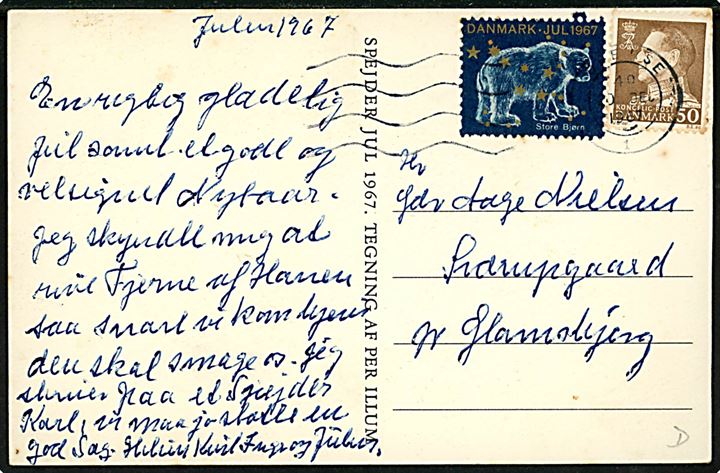 Julen 1967
En rigtig glædelig
Jul samt et godt og
velsignet Nytaar.
Jeg skyndte mig at
rive Fjerne af Hanen
saa snart vi kom hjem
den skal smage os. Jeg
skriver paa et Spejder
Kort, vi maa jo støtte en
god Sag. Hilsen Kirl og Julie.
SPEJDER JUL 1967. TEGNING AF PER ILLUM
DANMARK · JUL 1967
Store Bjørn
KONGELIG POST
DANMARK 50
Hr
Gdr Aage Nielsen
gaard
pr Glamsbjerg
D